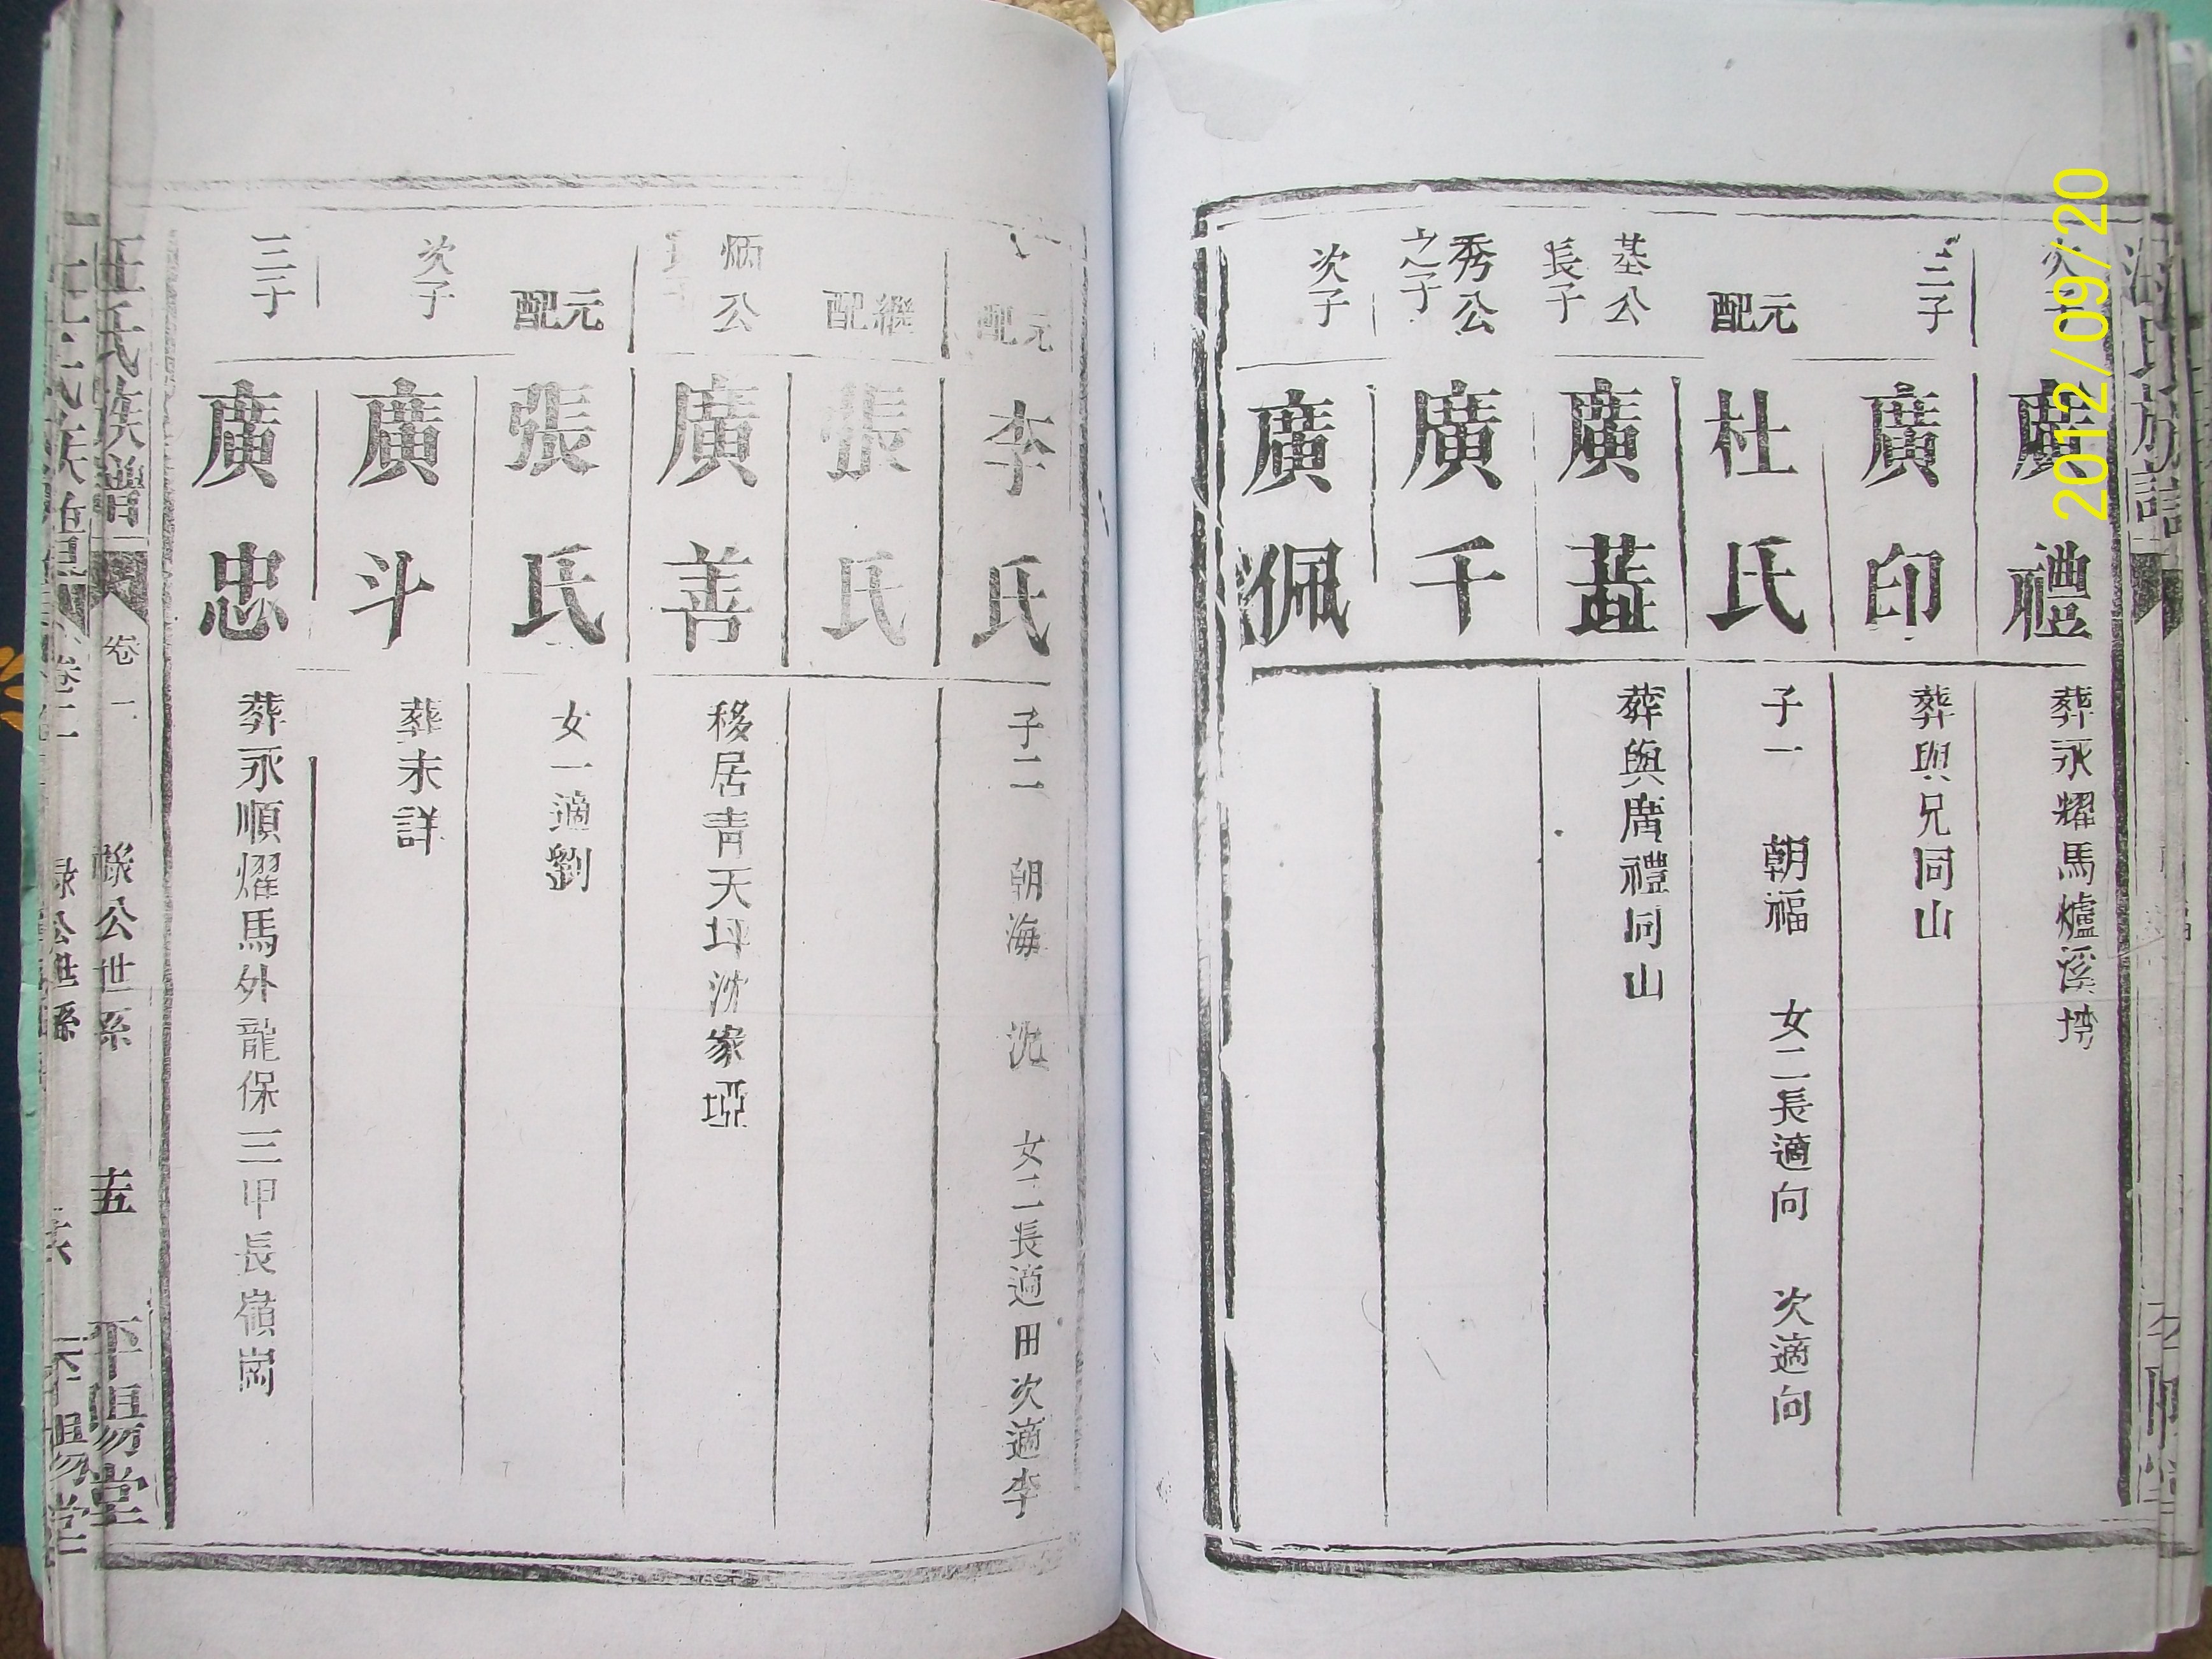 次子
廣禮
葬永耀馬爐溪塆
三子
廣印
葬與兄同山
元配
杜氏
子一 朝福 女二長適向 次適向
基公長子
廣
葬與廣禮同山
秀公之子
廣千
次子
廣佩
元配
李氏
子二 朝海 沈 女二長適田次適李
繼配
張氏
炳公
廣善
移居靑天坪沈家埡
元配
張氏
女一適劉
次子
廣斗
葬未詳
三子
廣忠
葬永順耀馬外龍保三甲長嶺崗
氏族譜
卷一
公世系
堂
氏族
卷二
公世系
堂
2012/09/20